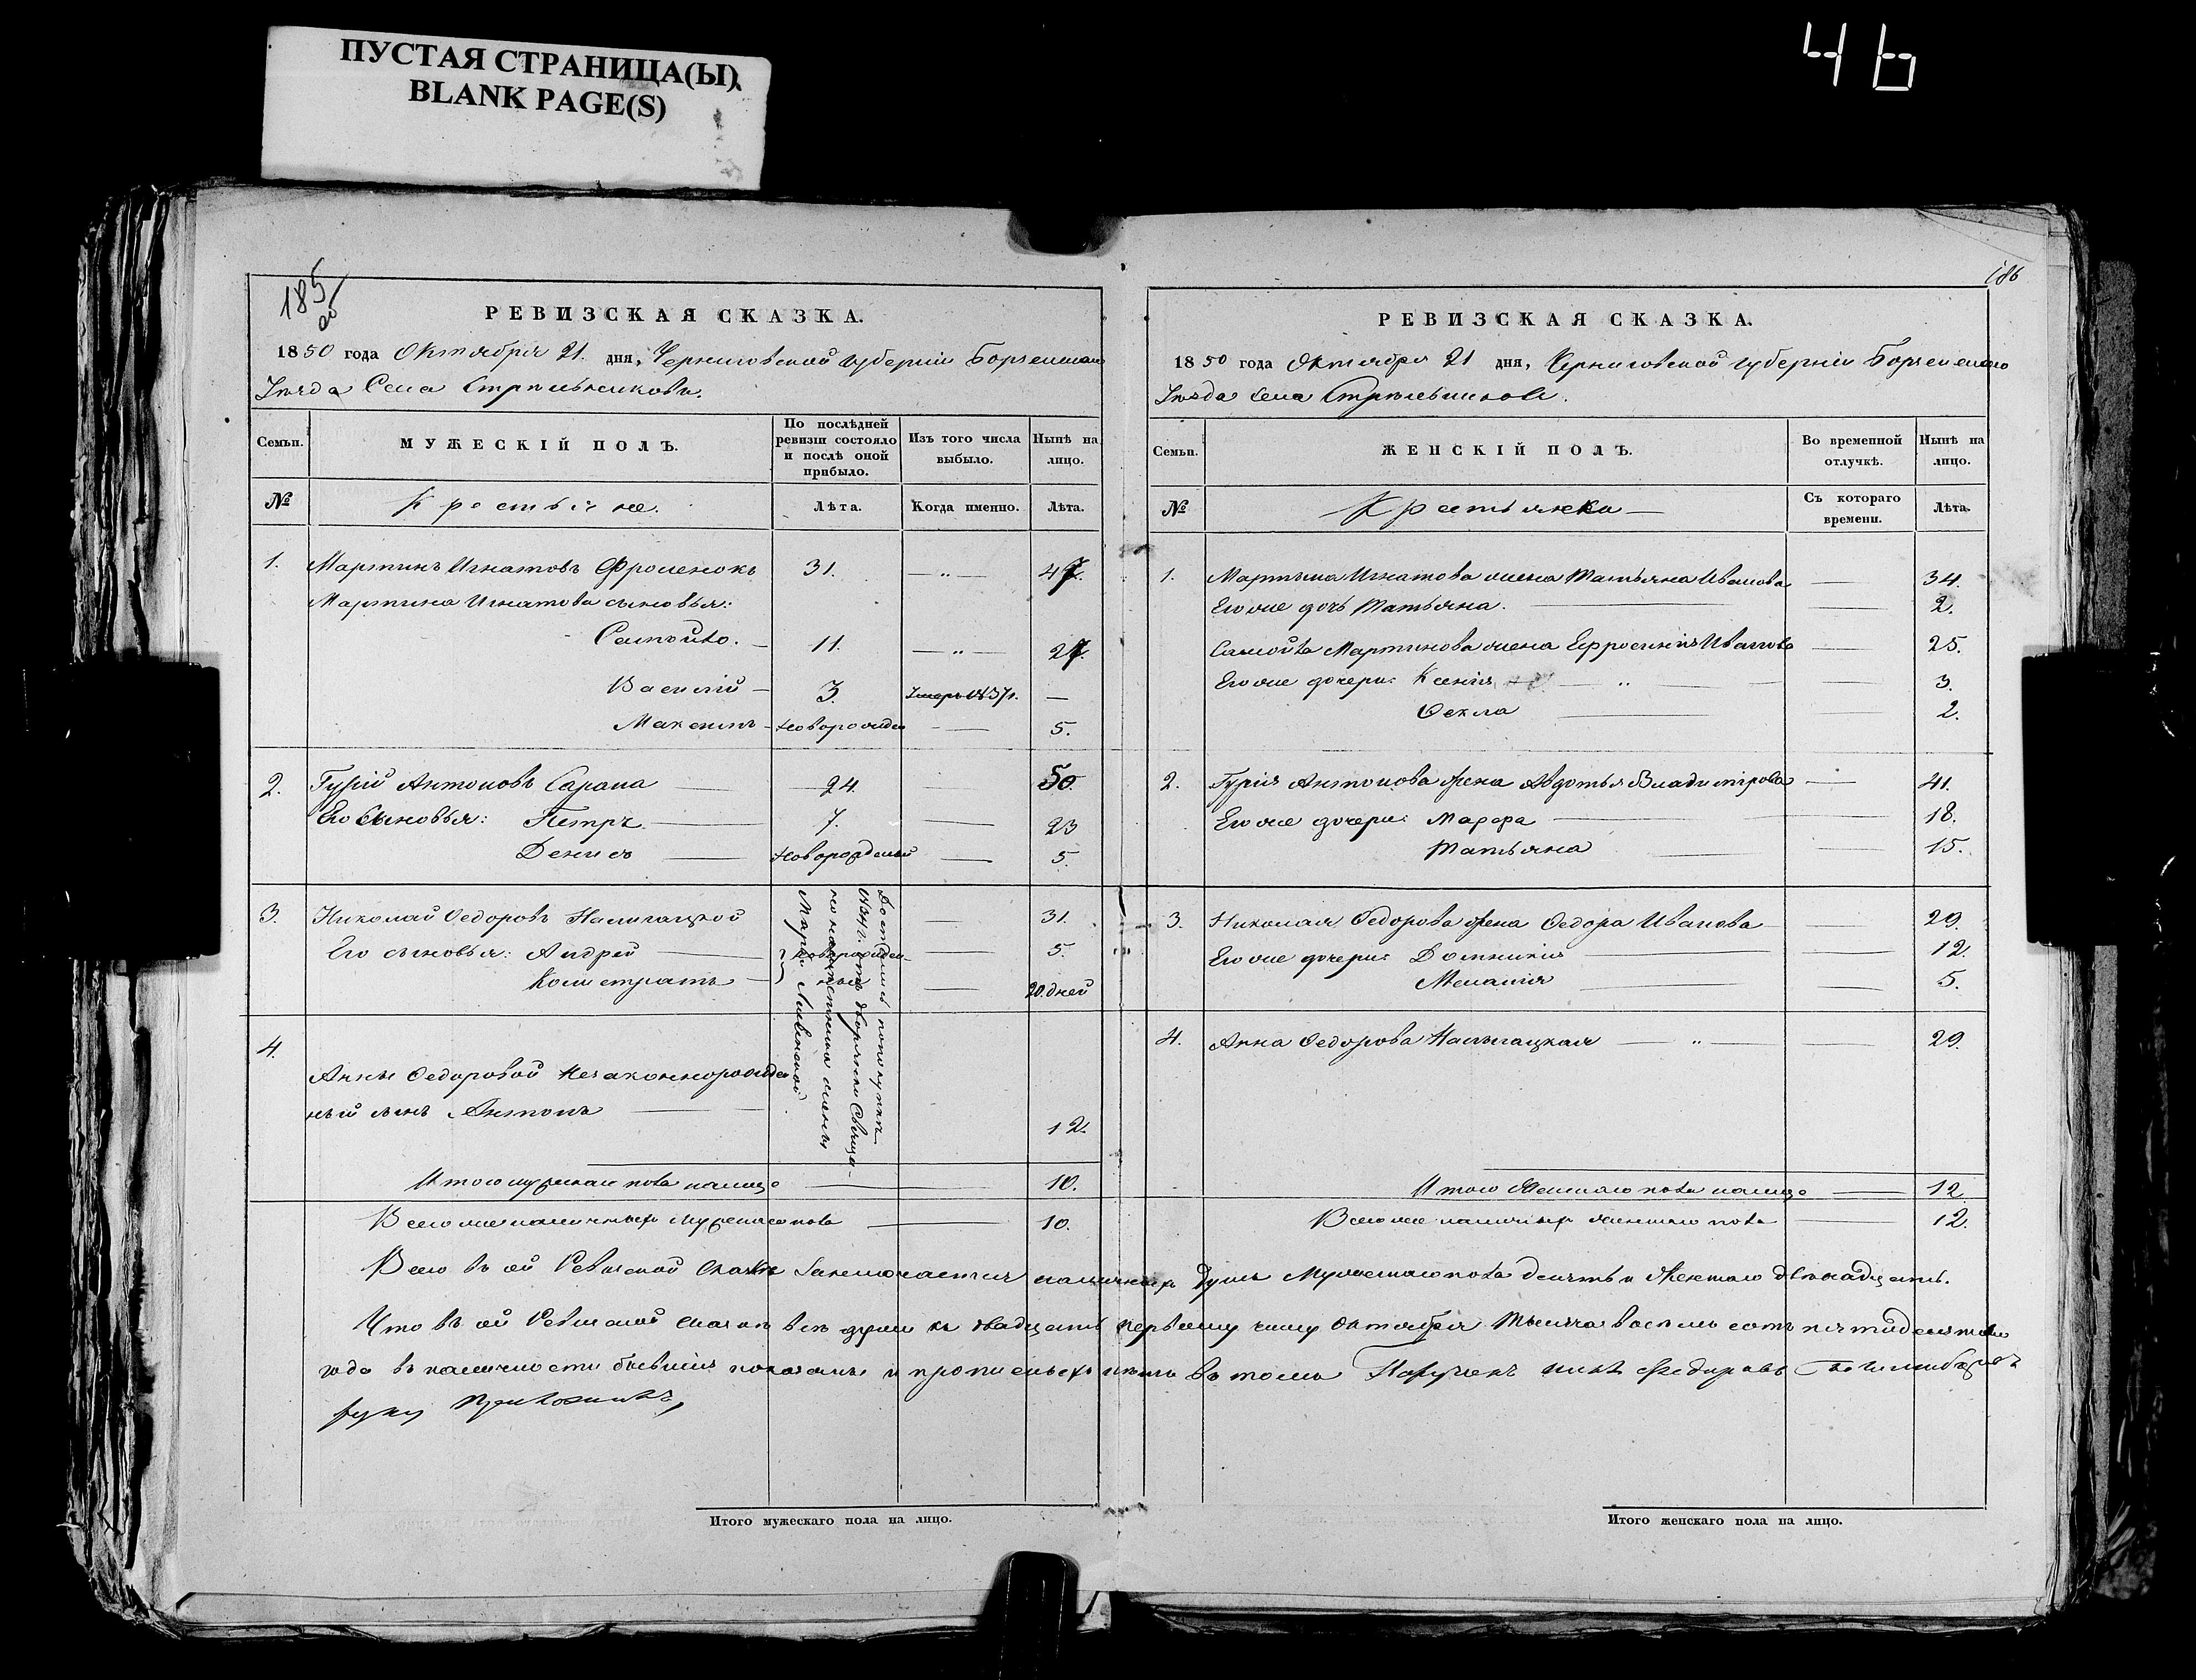 ПУСТАЯ СТРАНИЦА(Ы)
BLANK PAGE(S)
46
185
об
РЕВИЗСКАЯ СКАЗКА.
1850 года Октября 21 дня, Черниговской губерніи Борзенскаго
Уѣзда Села Стрѣльниковъ.
Семьи.
МУЖЕСКІЙ ПОЛЪ.
По послѣдней ревизіи состояло и послѣ оной прибыло.
Изъ того числа выбыло.
Нынѣ на лицо.
№ Крестьяне. Лѣта. Когда именно. Лѣта.
1. Мартинъ Игнатовъ Фроленокъ 31. — „ — 47.
Мартина Игнатова сыновья:
Самойло. — 11. — „ — 27.
Василій — 3. Умеръ 1837г. —
Максимъ — Новорожден — 5.
2. Гурій Антоновъ Сарана — 24. — 50.
Его Сыновья: Петръ — 7. — 23
Денисъ — Новорожденый — 5.
3. Николай Федоровъ Налигацкой — 31.
Его сыновья: Андрей — новорожден- — 5.
Калистратъ — ные — 20. дней
4.
Анны Федоровой Незаконнорожден
ный сынъ Антонъ — 12.
Достались покупкою
1834 г. отъ дворянки
Марьи
Итого мужскаго пола налицо — 10.
Всего же наличныхъ мужескаго пола — 10.
186
РЕВИЗСКАЯ СКАЗКА.
1850 года Октября 21 дня, Черниговской губерніи Борзенскаго
Уѣзда Села Стрѣльниковъ.
Семьи.
ЖЕНСКІЙ ПОЛЪ.
Во временной отлучкѣ.
Нынѣ на лицо.
№ Крестьянки — Съ котораго времени. Лѣта.
1. Мартына Игнатова жена Татьяна Иванова — 34.
Его же дочь Татьяна. — 2.
Самойла Мартинова жена Ефросинія Иванова — 25.
Его же дочери: Ксенія — „ — 3.
Фекла — 2.
2. Гурія Антонова жена Авдотья Владимірова — 41.
Его же дочери: Марфа — 18.
Татьяна — 15.
3. Николая Федорова жена Федора Иванова — 29.
Его же дочери: Домникія — 12.
Меланія — 5.
4. Анна Федорова Налыгацкая — „ — 29.
Итого Женскаго пола налицо — 12.
Всего же наличныхъ женскаго пола — 12.
Всего въ сей Ревизской Сказкѣ Заключается наличныхъ душъ Мужескаго пола десять и Женскаго двенадцать.
Что въ сей Ревизской сказкѣ всѣ души къ двадцать первому числу Октября тысяча восемь сотъ пятидесятаго
года въ наличности бывшія показаны и прописныхъ нѣтъ въ томъ
руку приложилъ,
Итого мужескаго пола на лицо.
Итого женскаго пола на лицо.